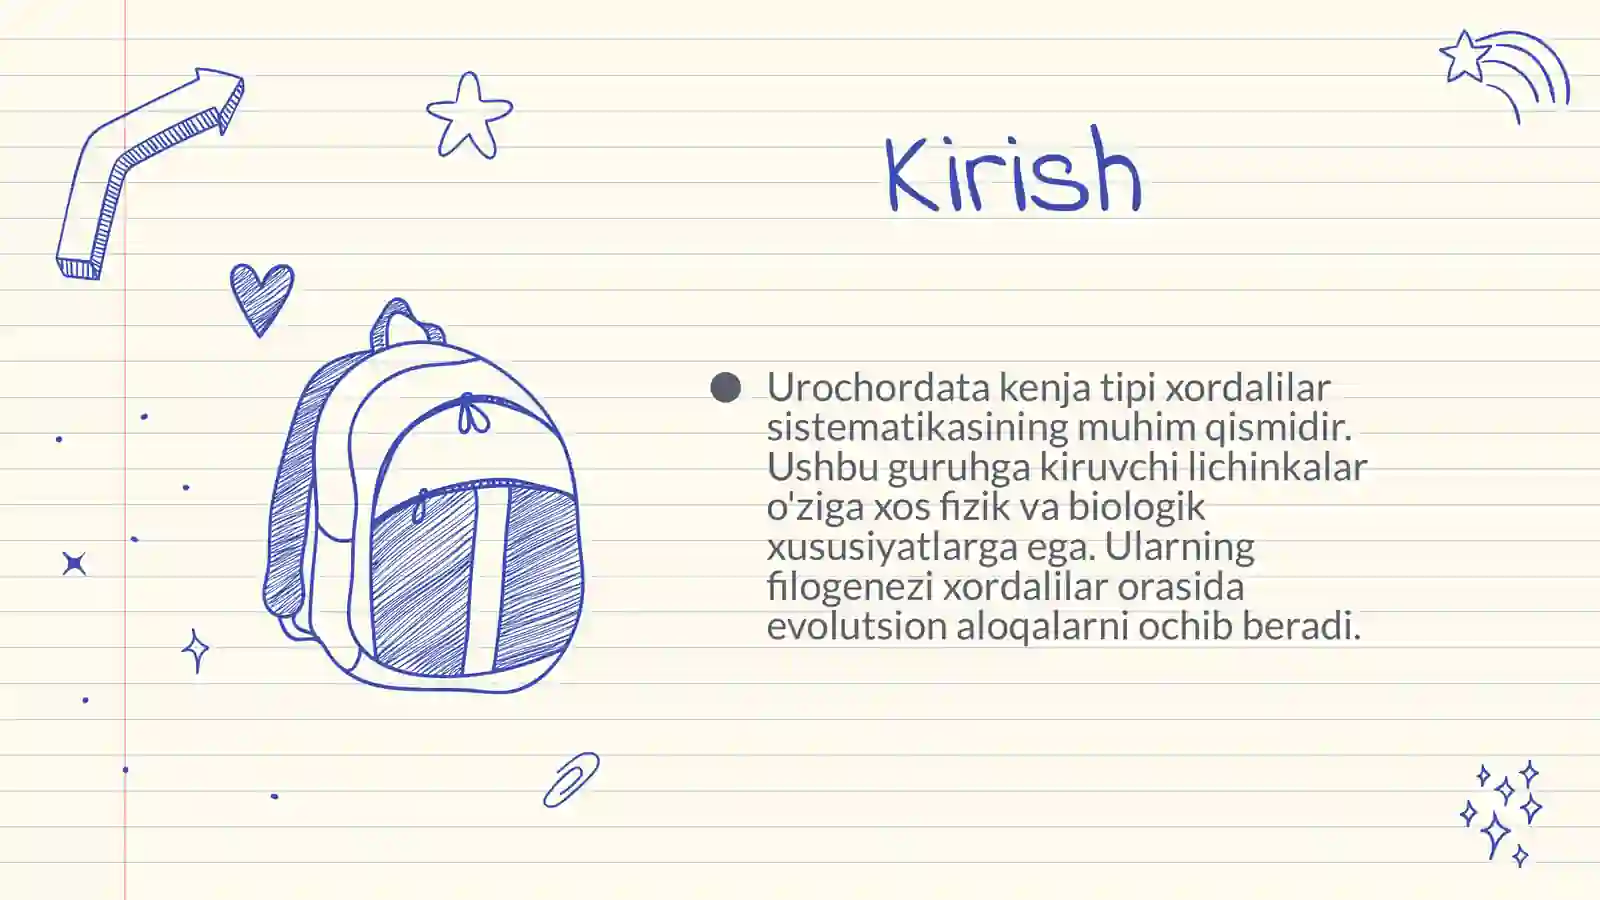 Kirish
Urochordata kenja tipi xordalilar
sistematikasining muhim qismidir.
Ushbu guruhga kiruvchi lichinkalar
o'ziga xos fizik va biologik
xususiyatlarga ega. Ularning
filogenezi xordalilar orasida
evolutsion aloqalarni ochib beradi.